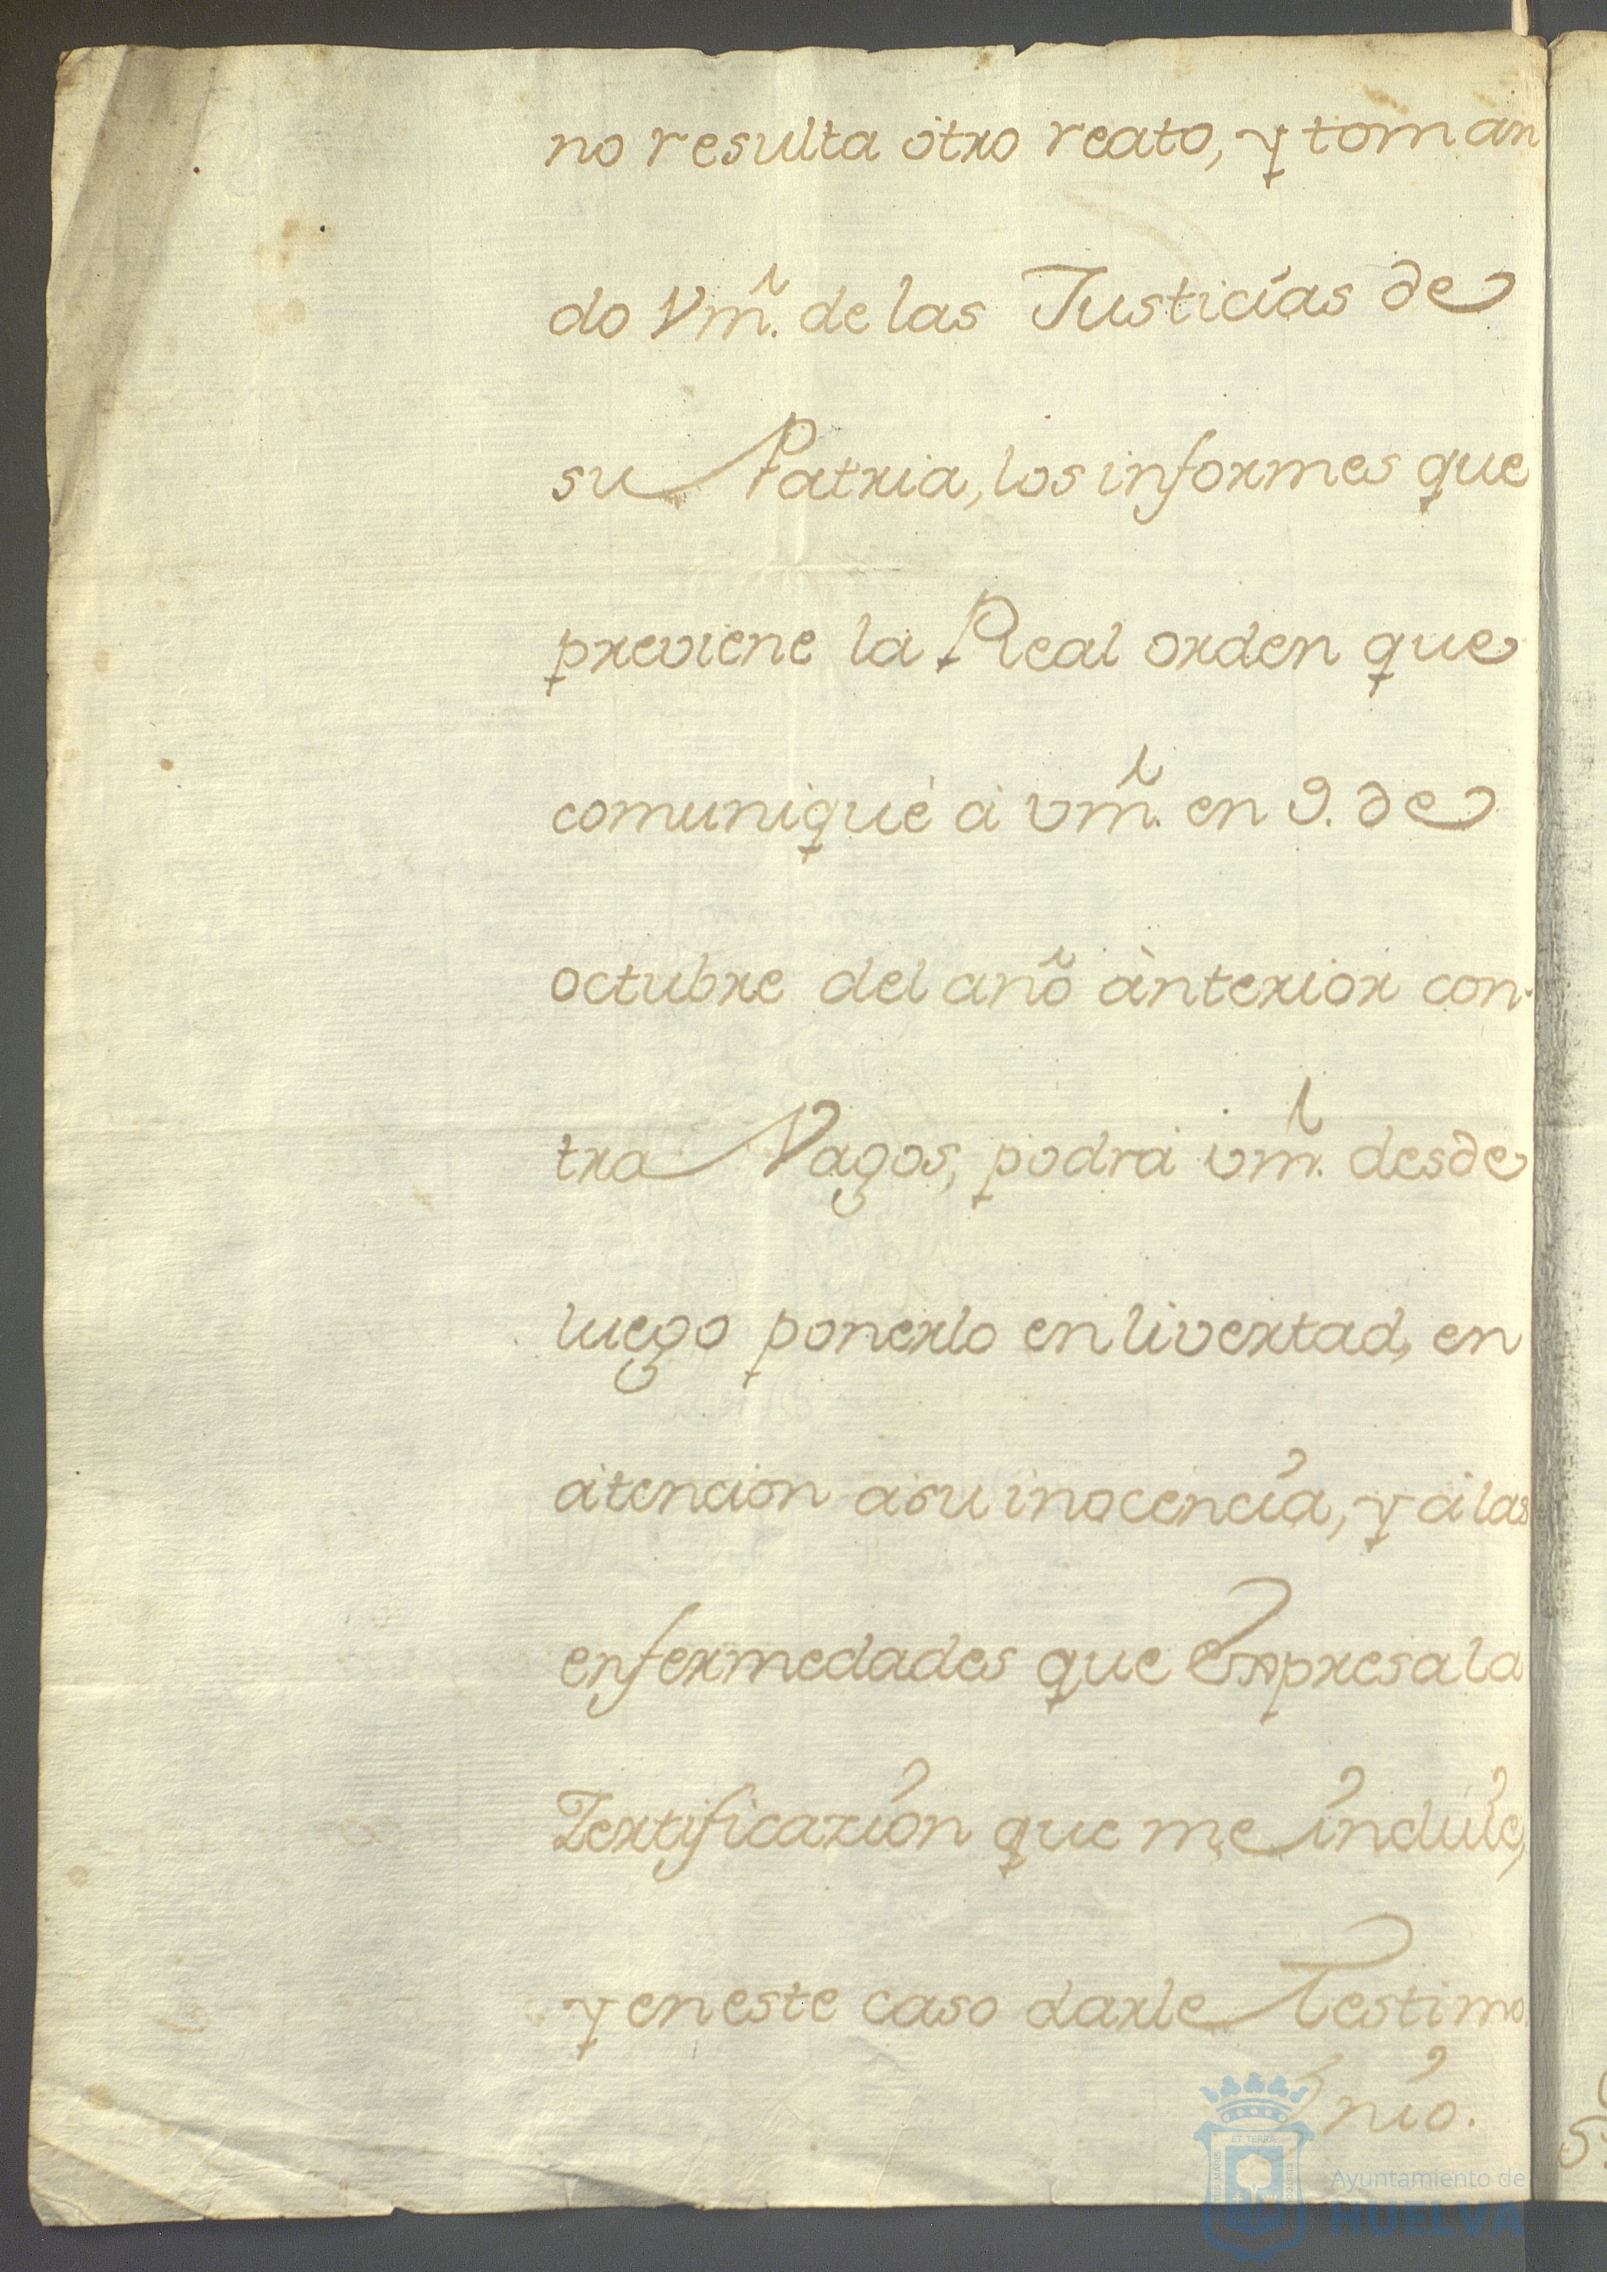 no resulta otro reato, y toman
do Vm̃. de las Justicias de
su Patria, los informes que
previene la Real orden que
comuniqué à vm̃. en 9. de
octubre del anõ ànterior con-
tra Vagos, podrá vm̃. desde
luego ponerlo en livertad, en
àtencion à su inocencia, y à las
enfermedades que Expresa la
Zertificazion que me inclúie,
y en este caso darle Testimo
nio.
ET TERRAE
Ayuntamiento de
HUELVA